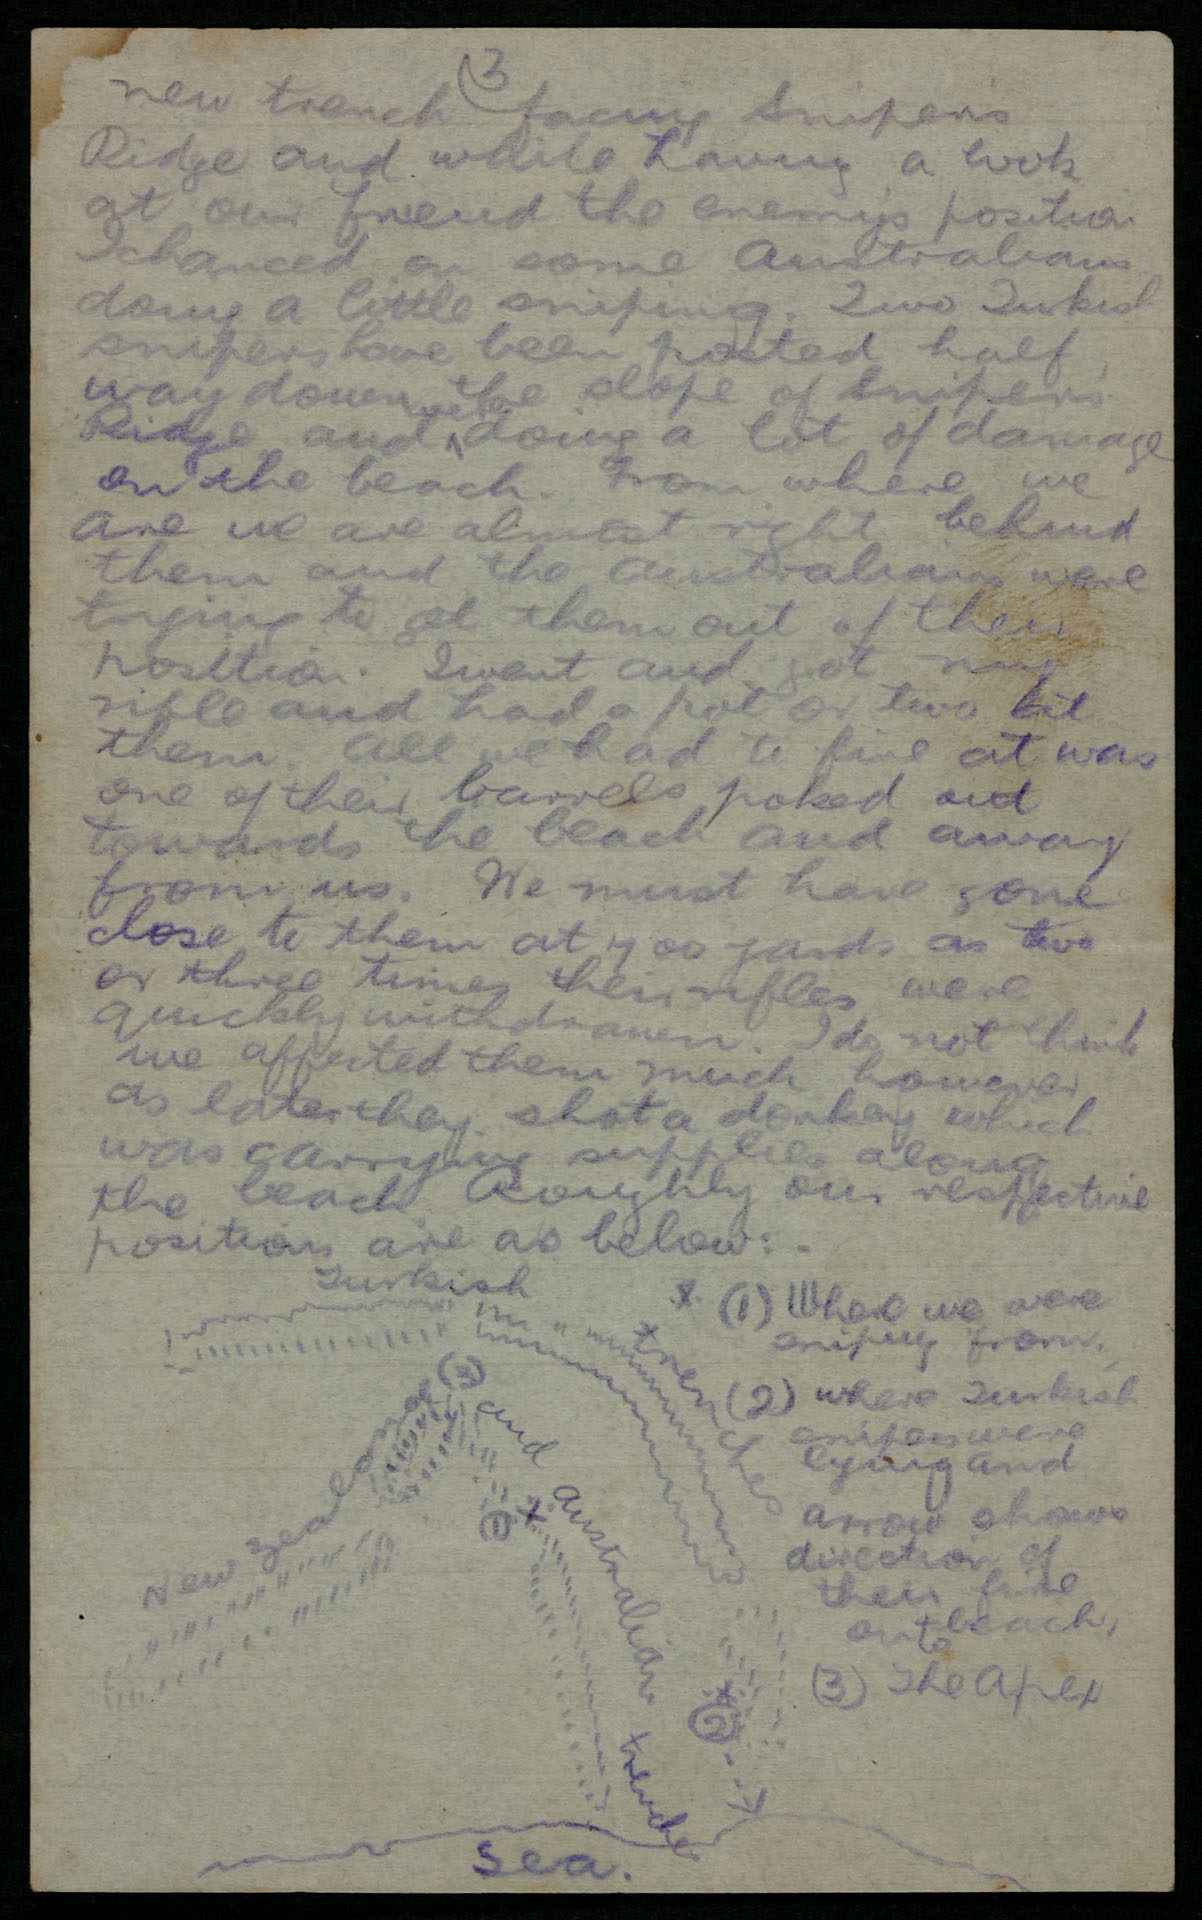 (3
new trench facing Sniper's
Ridge and while having a look
at our friend the enemy's position
I chanced on some Australians
doing a little sniping. Two Turkish
snipers have been posted half
way down the slope of Sniper's
Ridge and doing a lot of damage
on the beach. From where we
are we are almost right behind
them and the Australians were
trying to get them out of their
position. I went and got my
rifle and had a pot or two at
them. All we had to fire at was
one of their barrels poked out
towards the beach and away
from us. We must have gone
close to them at 400 yards as two
or three times their rifles were
quickly withdrawn. I do not think
we affected them much however
as later they shot a donkey which
was carrying supplies along
the beach. Roughly our respective
positions are as below:-
Turkish
trenches
x (1) Where we were
sniping from.
(2) where Turkish
snipers were
lying and
arrow shows
direction of
their fire
onto beach.
(3) The Apex
(3)
New Zealand
and Australian trenches
(1) x
x
(2)
Sea.